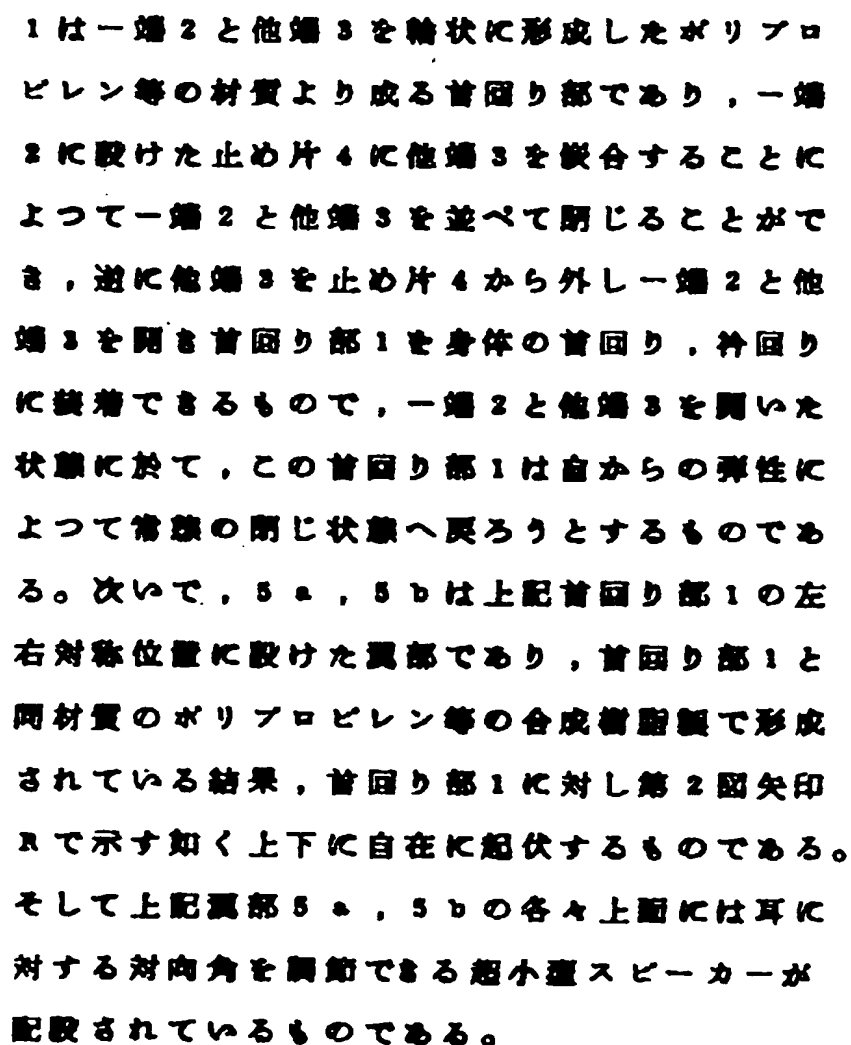 1は一端2と他端3を輪状に形成したポリプロ
ピレン等の材質より成る首回り部であり，一端
2に設けた止め片4に他端3を嵌合することに
よつて一端2と他端3を並べて閉じることがで
き，逆に他端3を止め片4から外し一端2と他
端3を開き首回り部1を身体の首回り，衿回り
に装着できるもので，一端2と他端3を開いた
状態に於て，この首回り部1は自からの弾性に
よつて常態の閉じ状態へ戻ろうとするものであ
る。次いで，5a，5bは上記首回り部1の左
右対称位置に設けた翼部であり，首回り部1と
同材質のポリプロピレン等の合成樹脂製で形成
されている結果，首回り部1に対し第2図矢印
Rで示す如く上下に自在に起伏するものである。
そして上記翼部5a，5bの各々上面には耳に
対する対向角を調節できる超小型スピーカーが
配設されているものである。